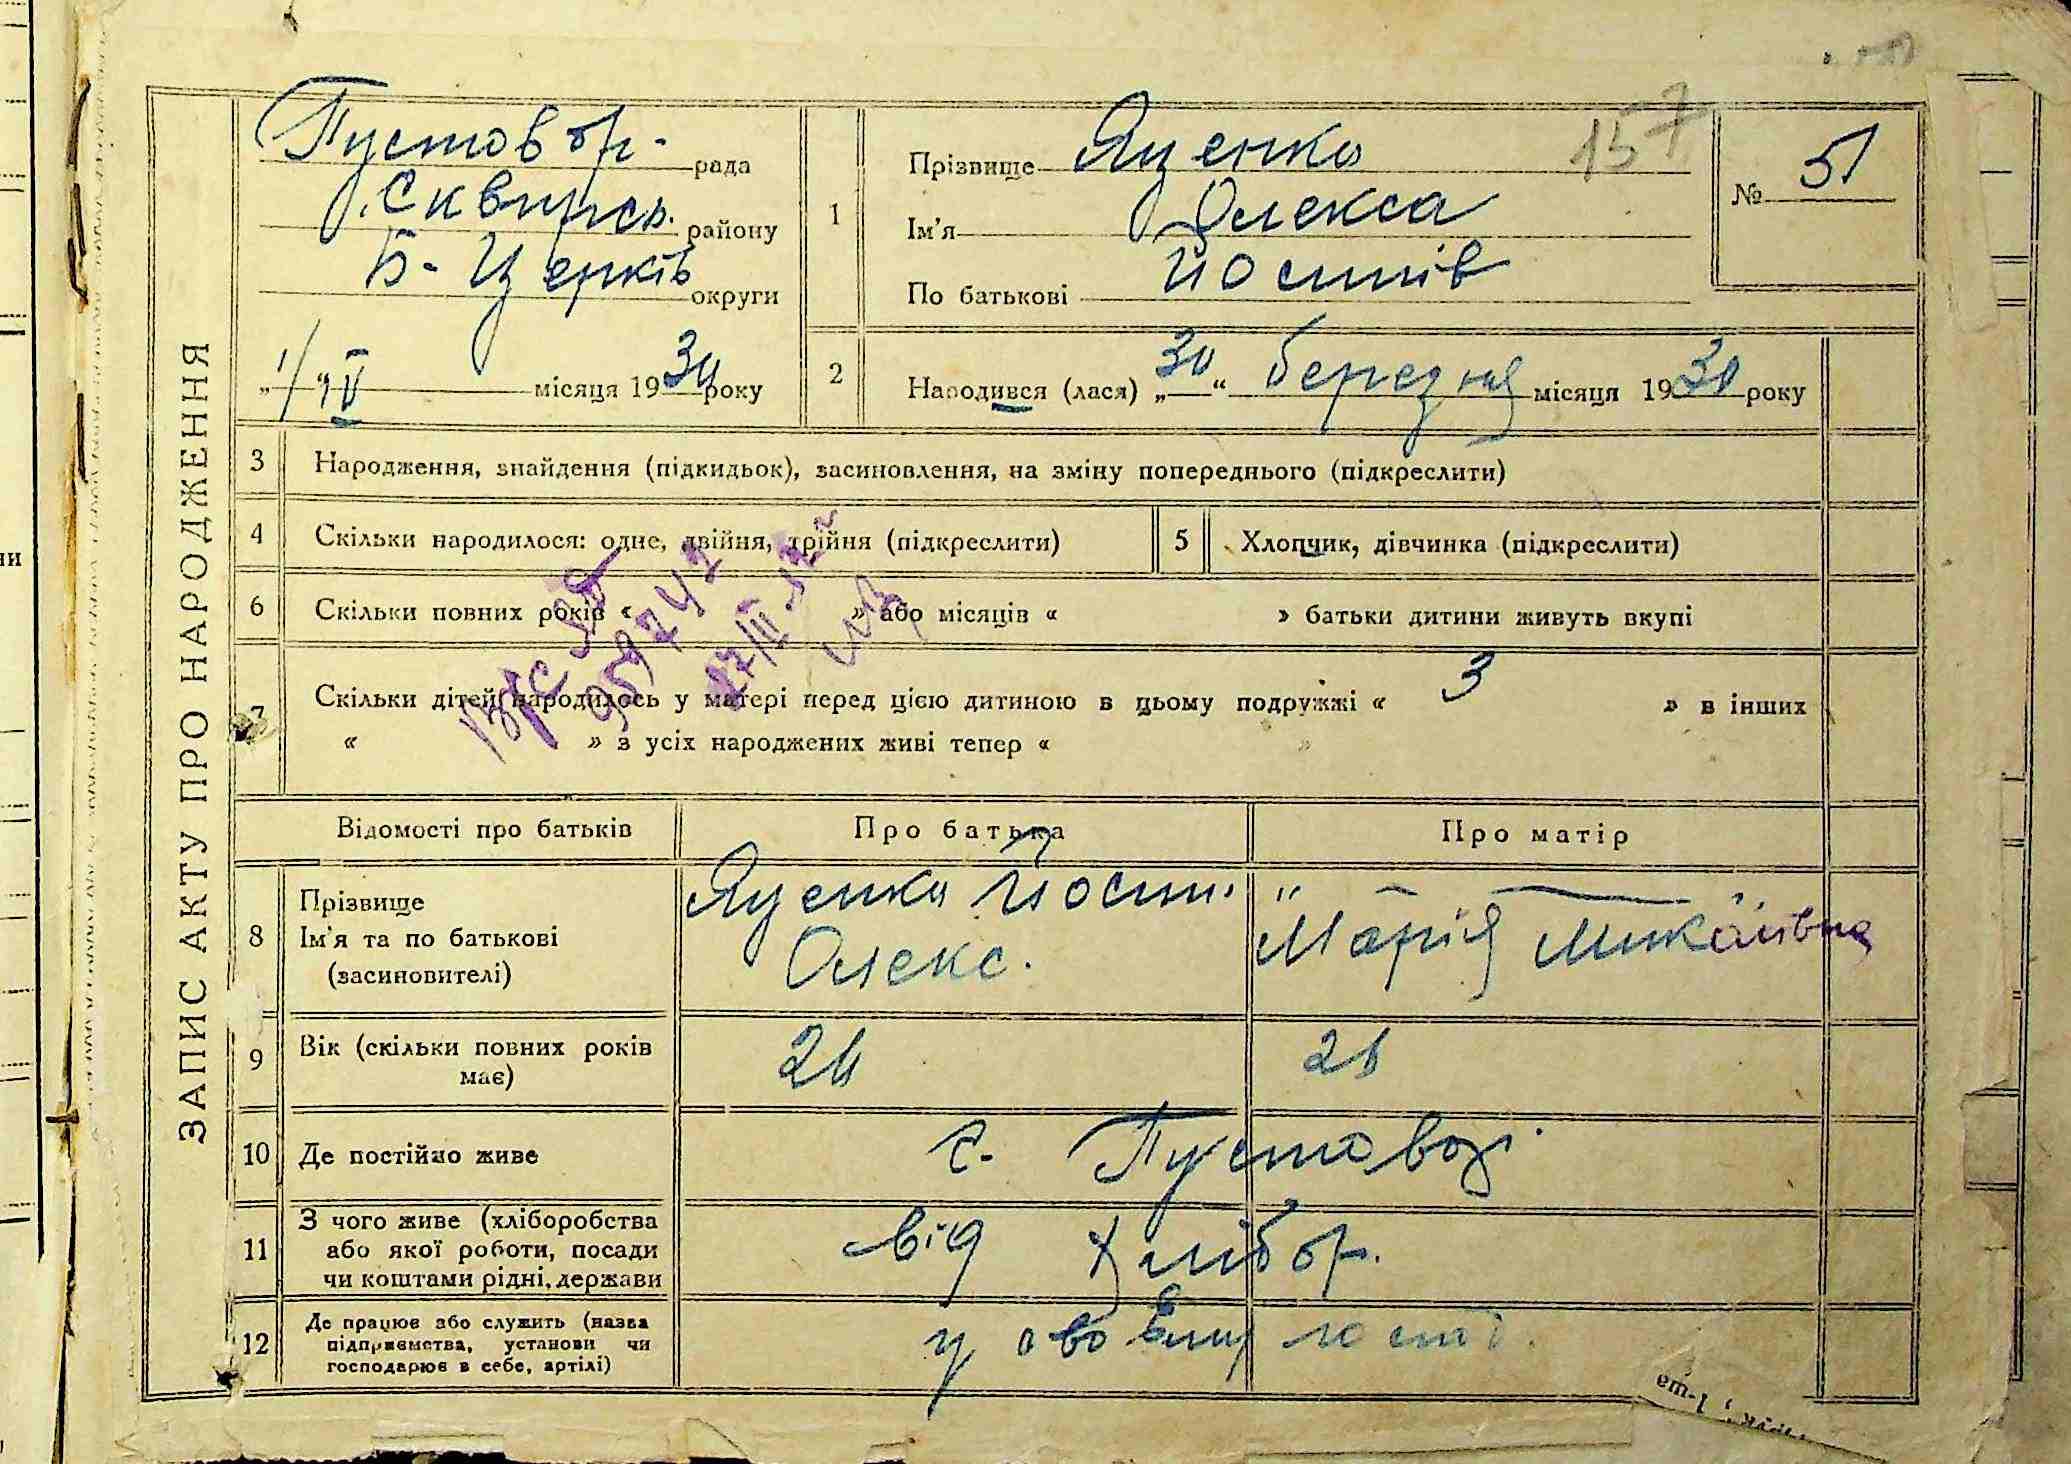 ЗАПИС АКТУ ПРО НАРОДЖЕННЯ
Пустовар. рада
Сквирсь. району
Б-Церків округи
„1/“ IV місяця 1930 року
157
1 Прізвище Яценко
Ім'я Олекса
По батькові Йосипів
№ 51
2 Народився (лася) „30“ березня місяця 1930 року
3 Народження, знайдення (підкидьок), засиновлення, на зміну попереднього (підкреслити)
4 Скільки народилося: одне, двійня, трійня (підкреслити)
5 Хлопчик, дівчинка (підкреслити)
6 Скільки повних років « » або місяців « » батьки дитини живуть вкупі
7 Скільки дітей народилось у матері перед цією дитиною в цьому подружжі « 3 » в інших
« » з усіх народжених живі тепер « »
959742
Відомості про батьків Про батька Про матір
8 Прізвище
Ім'я та по батькові
(засиновителі)
Яценко Йосип.
Олекс.
" —
Марія Михайлівна
9 Вік (скільки повних років
має)
10 Де постійно живе
с. Пустоварі
11 З чого живе (хліборобства
або якої роботи, посади
чи коштами рідні, держави
від хлібор.
12 Де працює або служить (назва
підприємства, установи чи
господарює в себе, артілі)
у своєму госп.